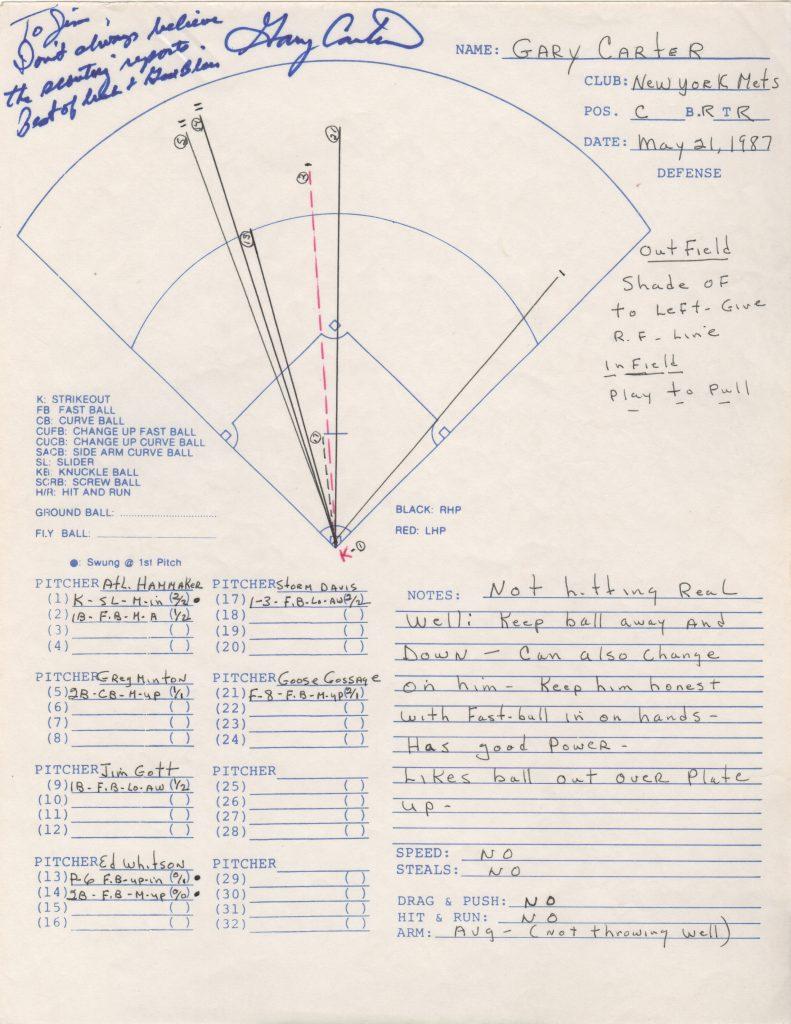 To Jim,
Don't always believe
the scouting reports.
Best of luck & God Bless
Gary Carter
NAME: GARY CARTER
CLUB: New york Mets
POS. C B. R T R
DATE: May 21, 1987
DEFENSE
OutField
Shade OF
to Left - Give
R.F - Line
InField
Play to Pull
K: STRIKEOUT
FB FAST BALL
CB: CURVE BALL
CUFB: CHANGE UP FAST BALL
CUCB: CHANGE UP CURVE BALL
SACB: SIDE ARM CURVE BALL
SL: SLIDER
KB: KNUCKLE BALL
SCRB: SCREW BALL
H/R: HIT AND RUN
GROUND BALL:
FLY BALL:
●: Swung @ 1st Pitch
BLACK: RHP
RED: LHP
K-①
PITCHER Atl. HAMMAKER
(1) K - SL - M - in (2/2) •
(2) 1B - F.B - M - A (1/2)
(3) ( )
(4) ( )
PITCHER Greg Minton
(5) 2B - CB - M - up (1/1)
(6) ( )
(7) ( )
(8) ( )
PITCHER Jim Gott
(9) 1B - F.B - Lo - AW (1/2)
(10) ( )
(11) ( )
(12) ( )
PITCHER Ed Whitson
(13) P-6 F.B - up - in (0/1) •
(14) 2B - F.B - M - up (0/0) •
(15) ( )
(16) ( )
PITCHER Storm DAVIS
(17) 1-3 - F.B - Lo - AW (2/2)
(18) ( )
(19) ( )
(20) ( )
PITCHER Goose Gossage
(21) F-8 - F.B - M - up (2/1)
(22) ( )
(23) ( )
(24) ( )
PITCHER
(25) ( )
(26) ( )
(27) ( )
(28) ( )
PITCHER
(29) ( )
(30) ( )
(31) ( )
(32) ( )
NOTES: Not hitting Real
Well: Keep ball away And
Down - Can also change
on him - Keep him honest
with Fast-ball in on hands -
Has good Power -
Likes ball out over Plate
up -
SPEED: NO
STEALS: NO
DRAG & PUSH: NO
HIT & RUN: NO
ARM: Avg - (not throwing well)